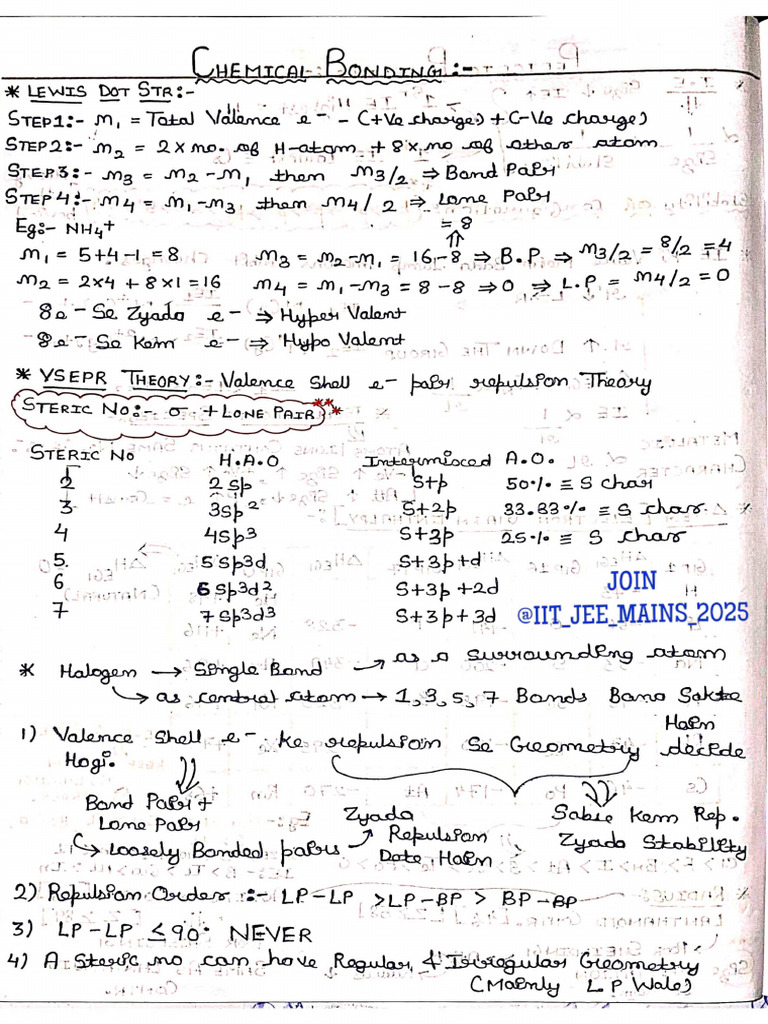 CHEMICAL BONDING :-
* LEWIS DOT STR:-
STEP1:- n₁ = Total Valence e⁻ - (+Ve charge) + (-Ve charge)
STEP2:- n₂ = 2 x no. of H-atom + 8 x no of other atom
STEP3:- n₃ = n₂ - n₁ then n₃/2 ⇒ Bond Pair
STEP4:- n₄ = n₁ - n₃, then n₄/2 ⇒ Lone Pair
Eg:- NH₄⁺ = 8
n₁ = 5+4-1 = 8 n₃ = n₂ - n₁ = 16-8 ⇒ B.P ⇒ n₃/2 = 8/2 = 4
n₂ = 2x4 + 8x1 = 16 n₄ = n₁ - n₃ = 8 - 8 ⇒ 0 ⇒ L.P = n₄/2 = 0
8e⁻ Se Zyada e⁻ ⇒ Hyper Valent
8e⁻ Se Kem e⁻ ⇒ Hypo Valent
* VSEPR THEORY:- Valence Shell e⁻ pair repulsion Theory
STERIC NO:- σ + LONE PAIR **
*
STERIC NO H.A.O Intermixed A.O.
2 2sp S+p 50% ≡ S char
3 3sp² S+2p 33.33% ≡ S char
4 4sp³ S+3p 25% ≡ S char
5. 5sp³d S+3p+d
6 6sp³d² S+3p+2d
7 7sp³d³ S+3p+3d
JOIN
@IIT_JEE_MAINS_2025
* Halogen → Single Bond → as a surrounding atom
→ as central atom → 1,3,5,7 Bonds Bana Sakte
Hain
1) Valence Shell e⁻ ke repulsion Se Geometry decide
Hogi.
Bond Pair + Zyada Sabse Kem Rep.
Lone Pair Repulsion Zyada Stability
→ Loosely Bonded pairs → Date Hain
2) Repulsion Order :- LP-LP > LP-BP > BP-BP
3) LP-LP < 90° NEVER
4) A Steric no can have Regular & Irregular Geometry
(Mainly L P Wale)